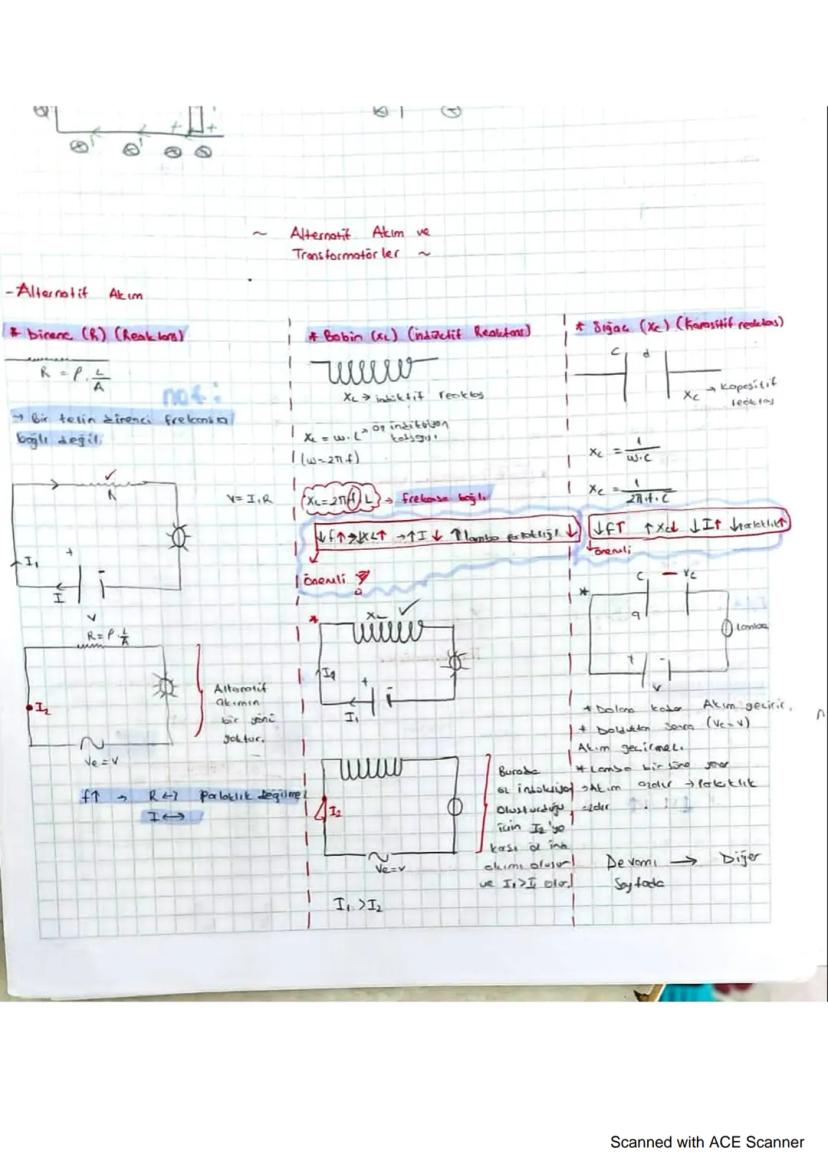 ~ Alternatif Akım ve
Transformatörler ~
-Alternatif Akım
* Direnc (R) (Reaktans)
R = ρ. L/A
not:
→ Bir telin direnci frekansa
bağlı değil.
R
V = I.R
I₁
+ -
I
V
R = ρ L/A
I₂
Alternatif
akımın
bir yönü
yoktur.
Ve = V
f↑ → R ↔ Parlaklık değişmez
I ↔
* Bobin (XL) (indüktif Reaktans)
XL → indüktif reaktas
XL = ω.L → öz indüksiyon katsayısı
(ω = 2πf)
XL = 2πf L → frekansa bağlı
↓f↑ → ↓XL↑ → ↑I↓ ↑lamba parlaklığı↓
önemli
* XL
I₁
+ -
I₁
I₂
Ve = V
Burada
öz indüksiyon
oluşturduğu
için I₂'ye
karşı öz ind
akımı oluşur
ve I₁ > I₂ olur.
I₁ > I₂
* Sığaç (Xc) (Kapasitif reaktas)
C d
Xc → Kapasitif
reaktas
Xc = 1/ω.C
Xc = 1/2π.f.C
↓f↑ ↑Xc↓ ↓I↑ ↓parlaklık↑
önemli
* C - Vc
q
Lamba
+ -
V
* Dolana kadar Akım geçirir.
* Dolduktan sonra (Vc = V)
Akım geçirmez.
* Lamba bir süre yanar
→ Akım azdır → Parlaklık
azdır
Devamı → Diğer
Sayfada
Scanned with ACE Scanner